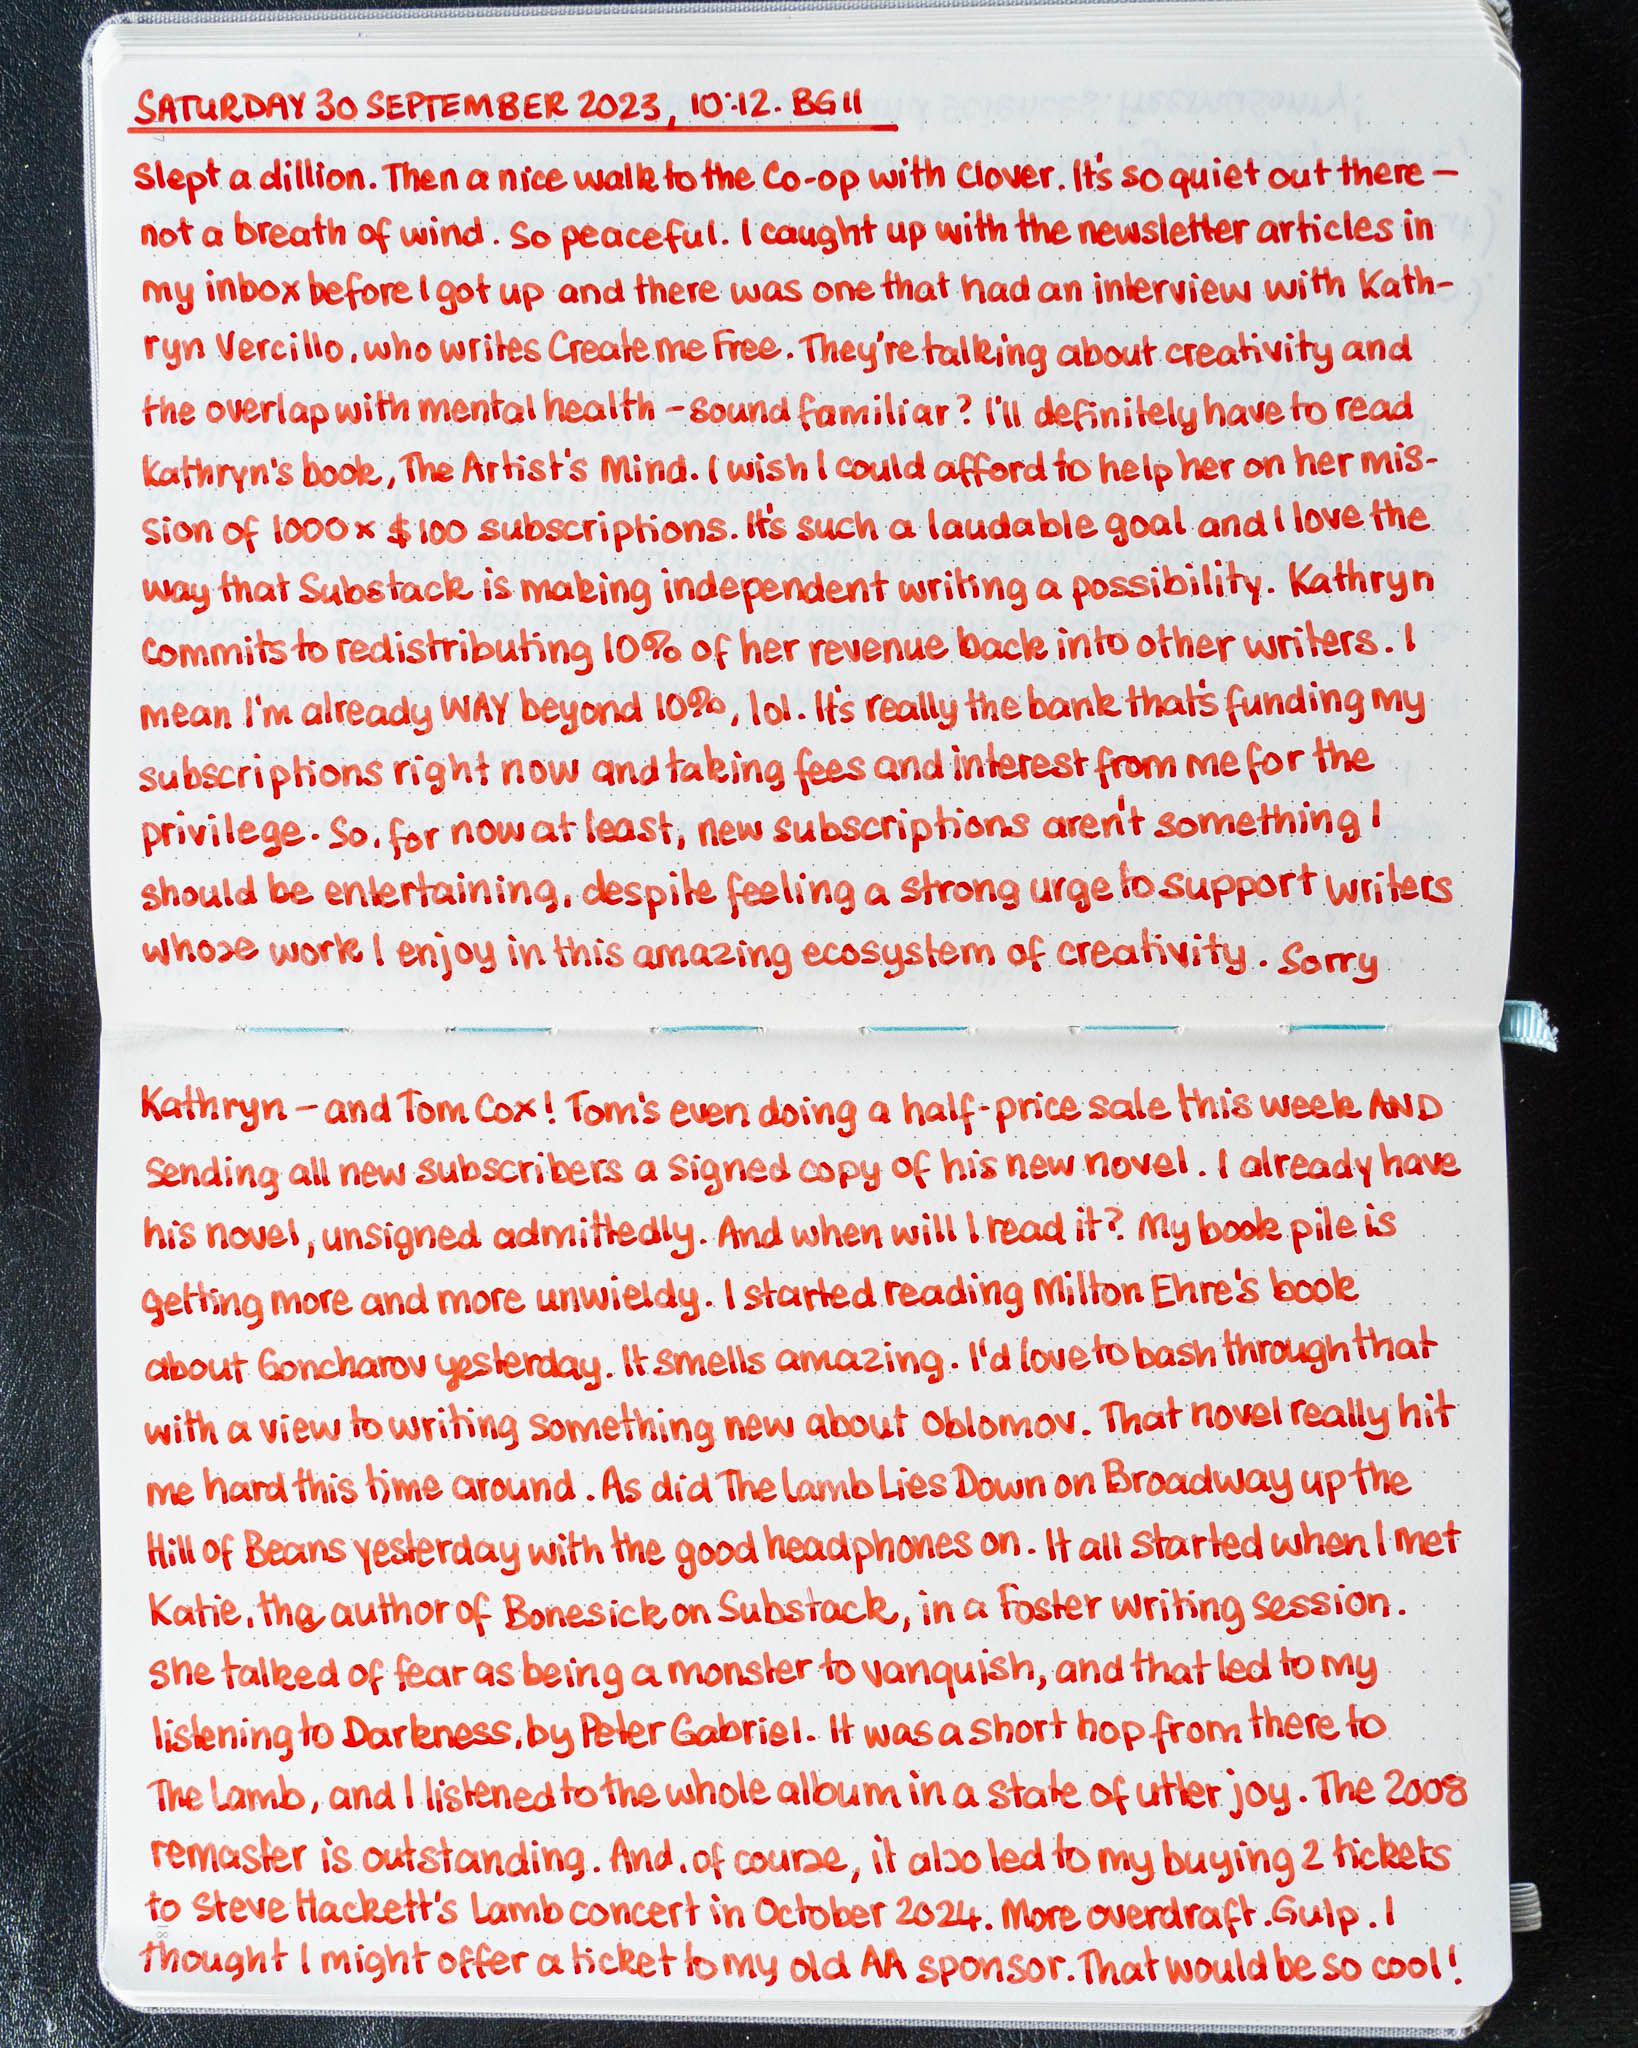 SATURDAY 30 SEPTEMBER 2023, 10:12. BG11
Slept a dillion. Then a nice walk to the Co-op with Clover. It's so quiet out there –
not a breath of wind. So peaceful. I caught up with the newsletter articles in
my inbox before I got up and there was one that had an interview with Kath-
ryn Vercillo, who writes Create me Free. They're talking about creativity and
the overlap with mental health – sound familiar? I'll definitely have to read
Kathryn's book, The Artist's Mind. I wish I could afford to help her on her mis-
sion of 1000 x $100 subscriptions. It's such a laudable goal and I love the
way that Substack is making independent writing a possibility. Kathryn
commits to redistributing 10% of her revenue back into other writers. I
mean I'm already WAY beyond 10%, lol. It's really the bank that's funding my
subscriptions right now and taking fees and interest from me for the
privilege. So, for now at least, new subscriptions aren't something I
should be entertaining, despite feeling a strong urge to support writers
whose work I enjoy in this amazing ecosystem of creativity. Sorry
Kathryn – and Tom Cox! Tom's even doing a half-price sale this week AND
sending all new subscribers a signed copy of his new novel. I already have
his novel, unsigned admittedly. And when will I read it? My book pile is
getting more and more unwieldy. I started reading Milton Ehre's book
about Goncharov yesterday. It smells amazing. I'd love to bash through that
with a view to writing something new about Oblomov. That novel really hit
me hard this time around. As did The Lamb Lies Down on Broadway up the
Hill of Beans yesterday with the good headphones on. It all started when I met
Katie, the author of Bonesick on Substack, in a Foster writing session.
She talked of fear as being a monster to vanquish, and that led to my
listening to Darkness, by Peter Gabriel. It was a short hop from there to
The Lamb, and I listened to the whole album in a state of utter joy. The 2008
remaster is outstanding. And, of course, it also led to my buying 2 tickets
to Steve Hackett's Lamb concert in October 2024. More overdraft. Gulp. I
thought I might offer a ticket to my old AA sponsor. That would be so cool!